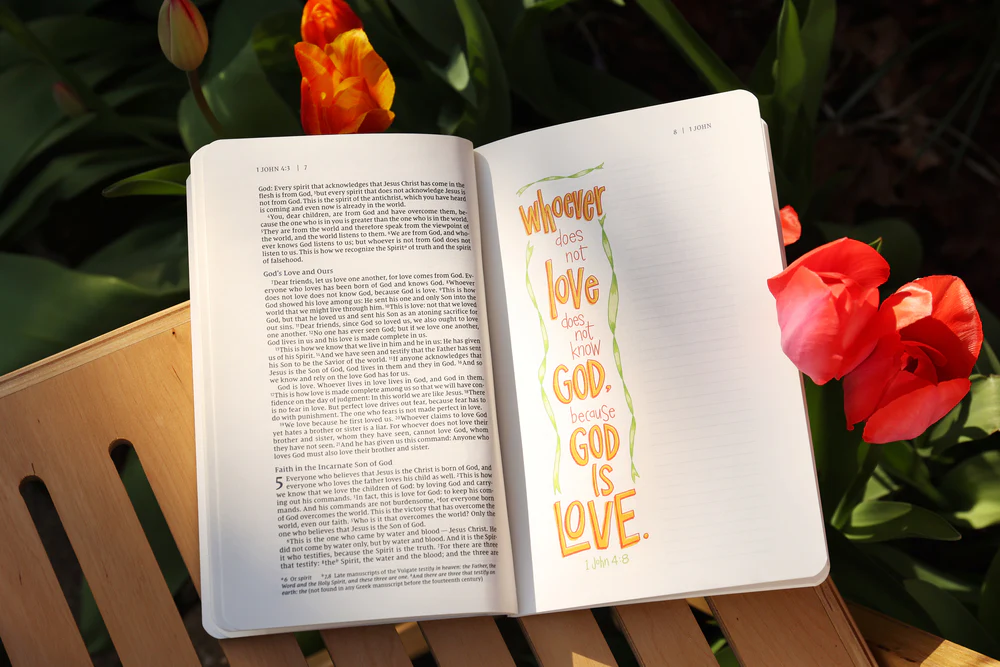 1 JOHN 4:3 | 7
God: Every spirit that acknowledges that Jesus Christ has come in the
flesh is from God, ³but every spirit that does not acknowledge Jesus is
not from God. This is the spirit of the antichrist, which you have heard
is coming and even now is already in the world.
⁴You, dear children, are from God and have overcome them, be-
cause the one who is in you is greater than the one who is in the world.
⁵They are from the world and therefore speak from the viewpoint of
the world, and the world listens to them. ⁶We are from God, and who-
ever knows God listens to us; but whoever is not from God does not
listen to us. This is how we recognize the Spiritᵃ of truth and the spirit
of falsehood.
God's Love and Ours
⁷Dear friends, let us love one another, for love comes from God. Ev-
eryone who loves has been born of God and knows God. ⁸Whoever
does not love does not know God, because God is love. ⁹This is how
God showed his love among us: He sent his one and only Son into the
world that we might live through him. ¹⁰This is love: not that we loved
God, but that he loved us and sent his Son as an atoning sacrifice for
our sins. ¹¹Dear friends, since God so loved us, we also ought to love
one another. ¹²No one has ever seen God; but if we love one another,
God lives in us and his love is made complete in us.
¹³This is how we know that we live in him and he in us: He has given
us of his Spirit. ¹⁴And we have seen and testify that the Father has sent
his Son to be the Savior of the world. ¹⁵If anyone acknowledges that
Jesus is the Son of God, God lives in them and they in God. ¹⁶And so
we know and rely on the love God has for us.
God is love. Whoever lives in love lives in God, and God in them.
¹⁷This is how love is made complete among us so that we will have con-
fidence on the day of judgment: In this world we are like Jesus. ¹⁸There
is no fear in love. But perfect love drives out fear, because fear has to
do with punishment. The one who fears is not made perfect in love.
¹⁹We love because he first loved us. ²⁰Whoever claims to love God
yet hates a brother or sister is a liar. For whoever does not love their
brother and sister, whom they have seen, cannot love God, whom
they have not seen. ²¹And he has given us this command: Anyone who
loves God must also love their brother and sister.
Faith in the Incarnate Son of God
5 Everyone who believes that Jesus is the Christ is born of God, and
everyone who loves the father loves his child as well. ²This is how
we know that we love the children of God: by loving God and carry-
ing out his commands. ³In fact, this is love for God: to keep his com-
mands. And his commands are not burdensome, ⁴for everyone born
of God overcomes the world. This is the victory that has overcome the
world, even our faith. ⁵Who is it that overcomes the world? Only the
one who believes that Jesus is the Son of God.
⁶This is the one who came by water and blood — Jesus Christ. He
did not come by water only, but by water and blood. And it is the Spir-
it who testifies, because the Spirit is the truth. ⁷For there are three
that testify: ⁸theᵇ Spirit, the water and the blood; and the three are
ᵃ6 Or spirit ᵇ7,8 Late manuscripts of the Vulgate testify in heaven: the Father, the
Word and the Holy Spirit, and these three are one. ⁸And there are three that testify on
earth: the (not found in any Greek manuscript before the fourteenth century)
8 | 1 JOHN
whoever
does
not
love
does
not
know
GOD,
because
GOD
IS
LOVE.
1 John 4:8